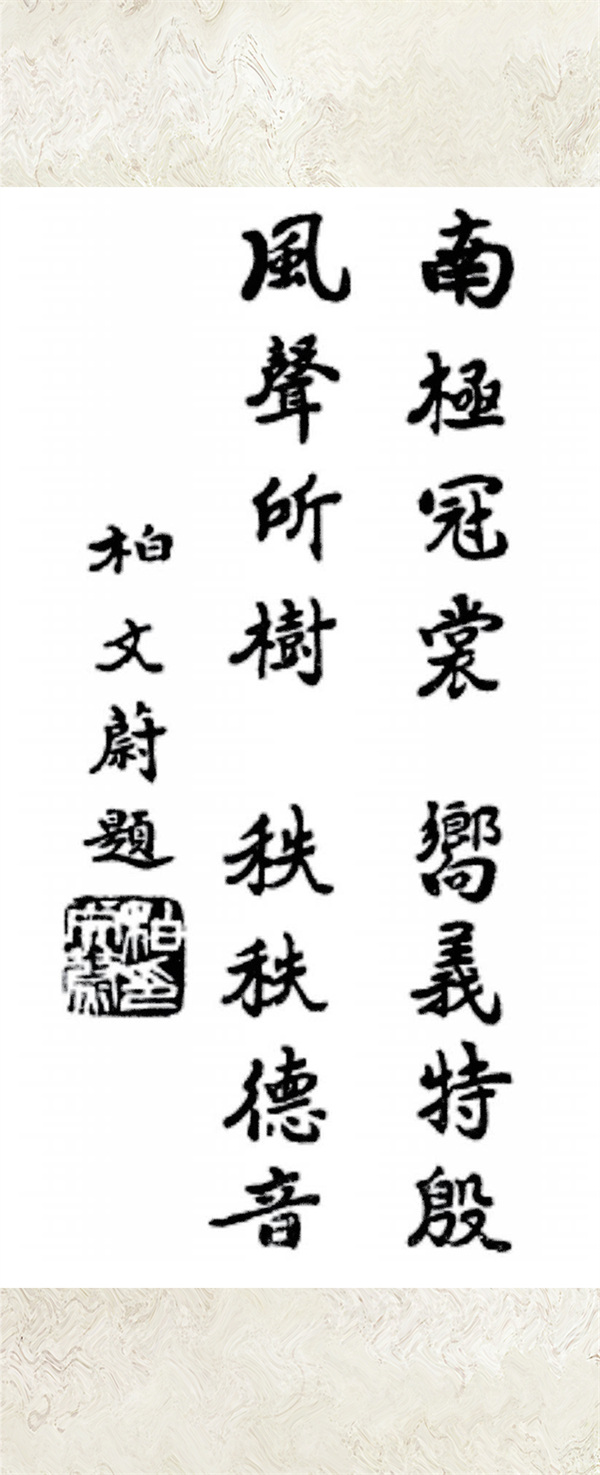 南極冠裳 嚮義特殷
風聲所樹 秩秩德音
柏文蔚題
柏文蔚印